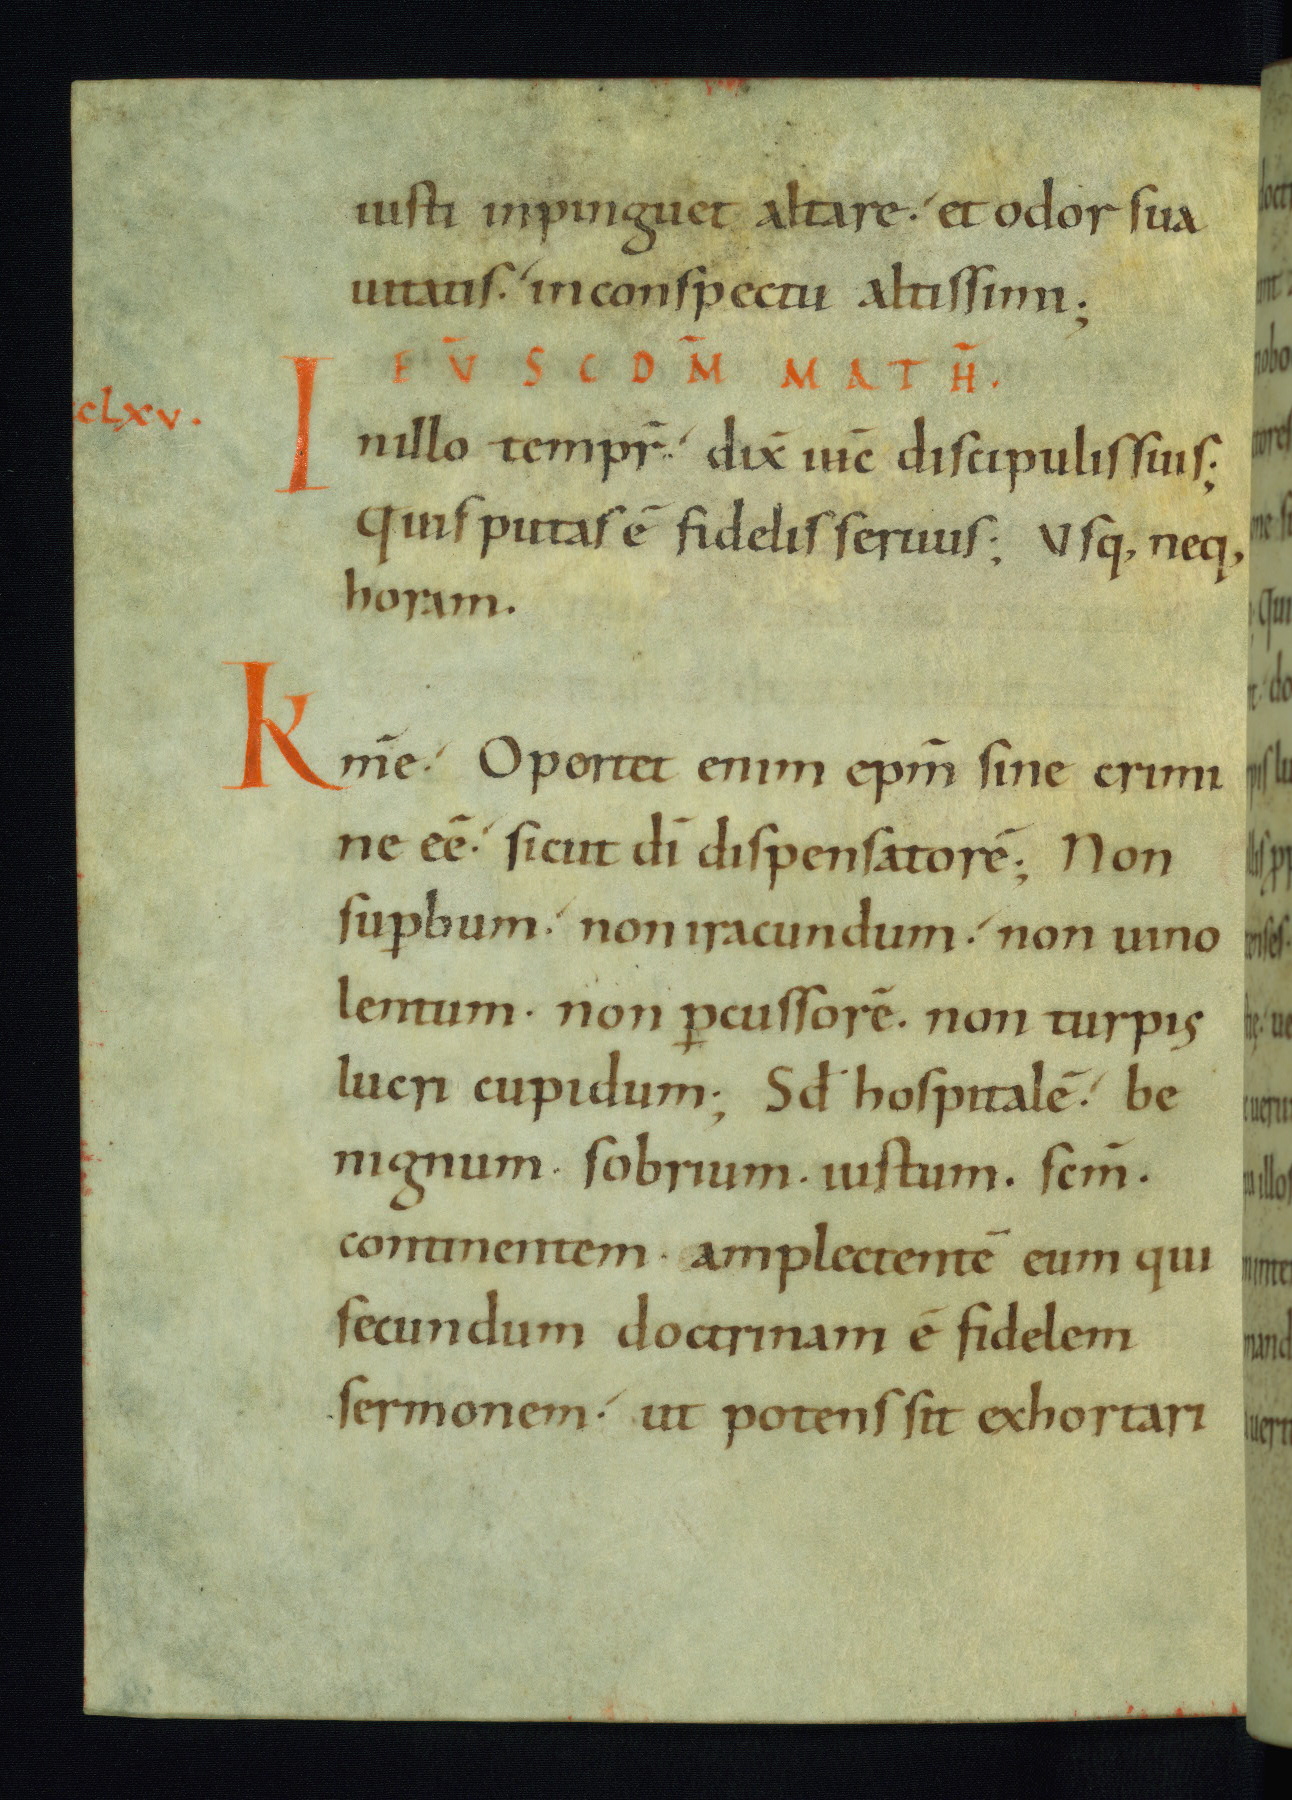 iusti inpinguet altare. et odor sua
uitatis. inconspectu altissimi;
EṼ SCDM̃ MATH̃.
cclxv.
Inillo tempr̃. dix̃ iħc̃ discipulissuis;
Quisputasẽ fidelisseruus; Vsq, neq,
horam.
Km̃e. Oportet enim epm̃ sine crimi
ne eẽ. sicut dĩ dispensatorẽ; Non
suꝑbum. non iracundum. non uino
lentum. non ꝑcussorẽ. non turpis
lucri cupidum; Sđ hospitalẽ. be
nignum. sobrium. iustum. scm̃.
continentem. amplectentẽ eum qui
secundum doctrinam ẽ fidelem
sermonem. ut potenssit exhortari